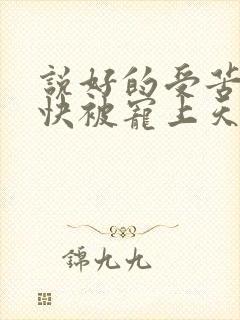 說好的受苦
快被寵上天
錦九九